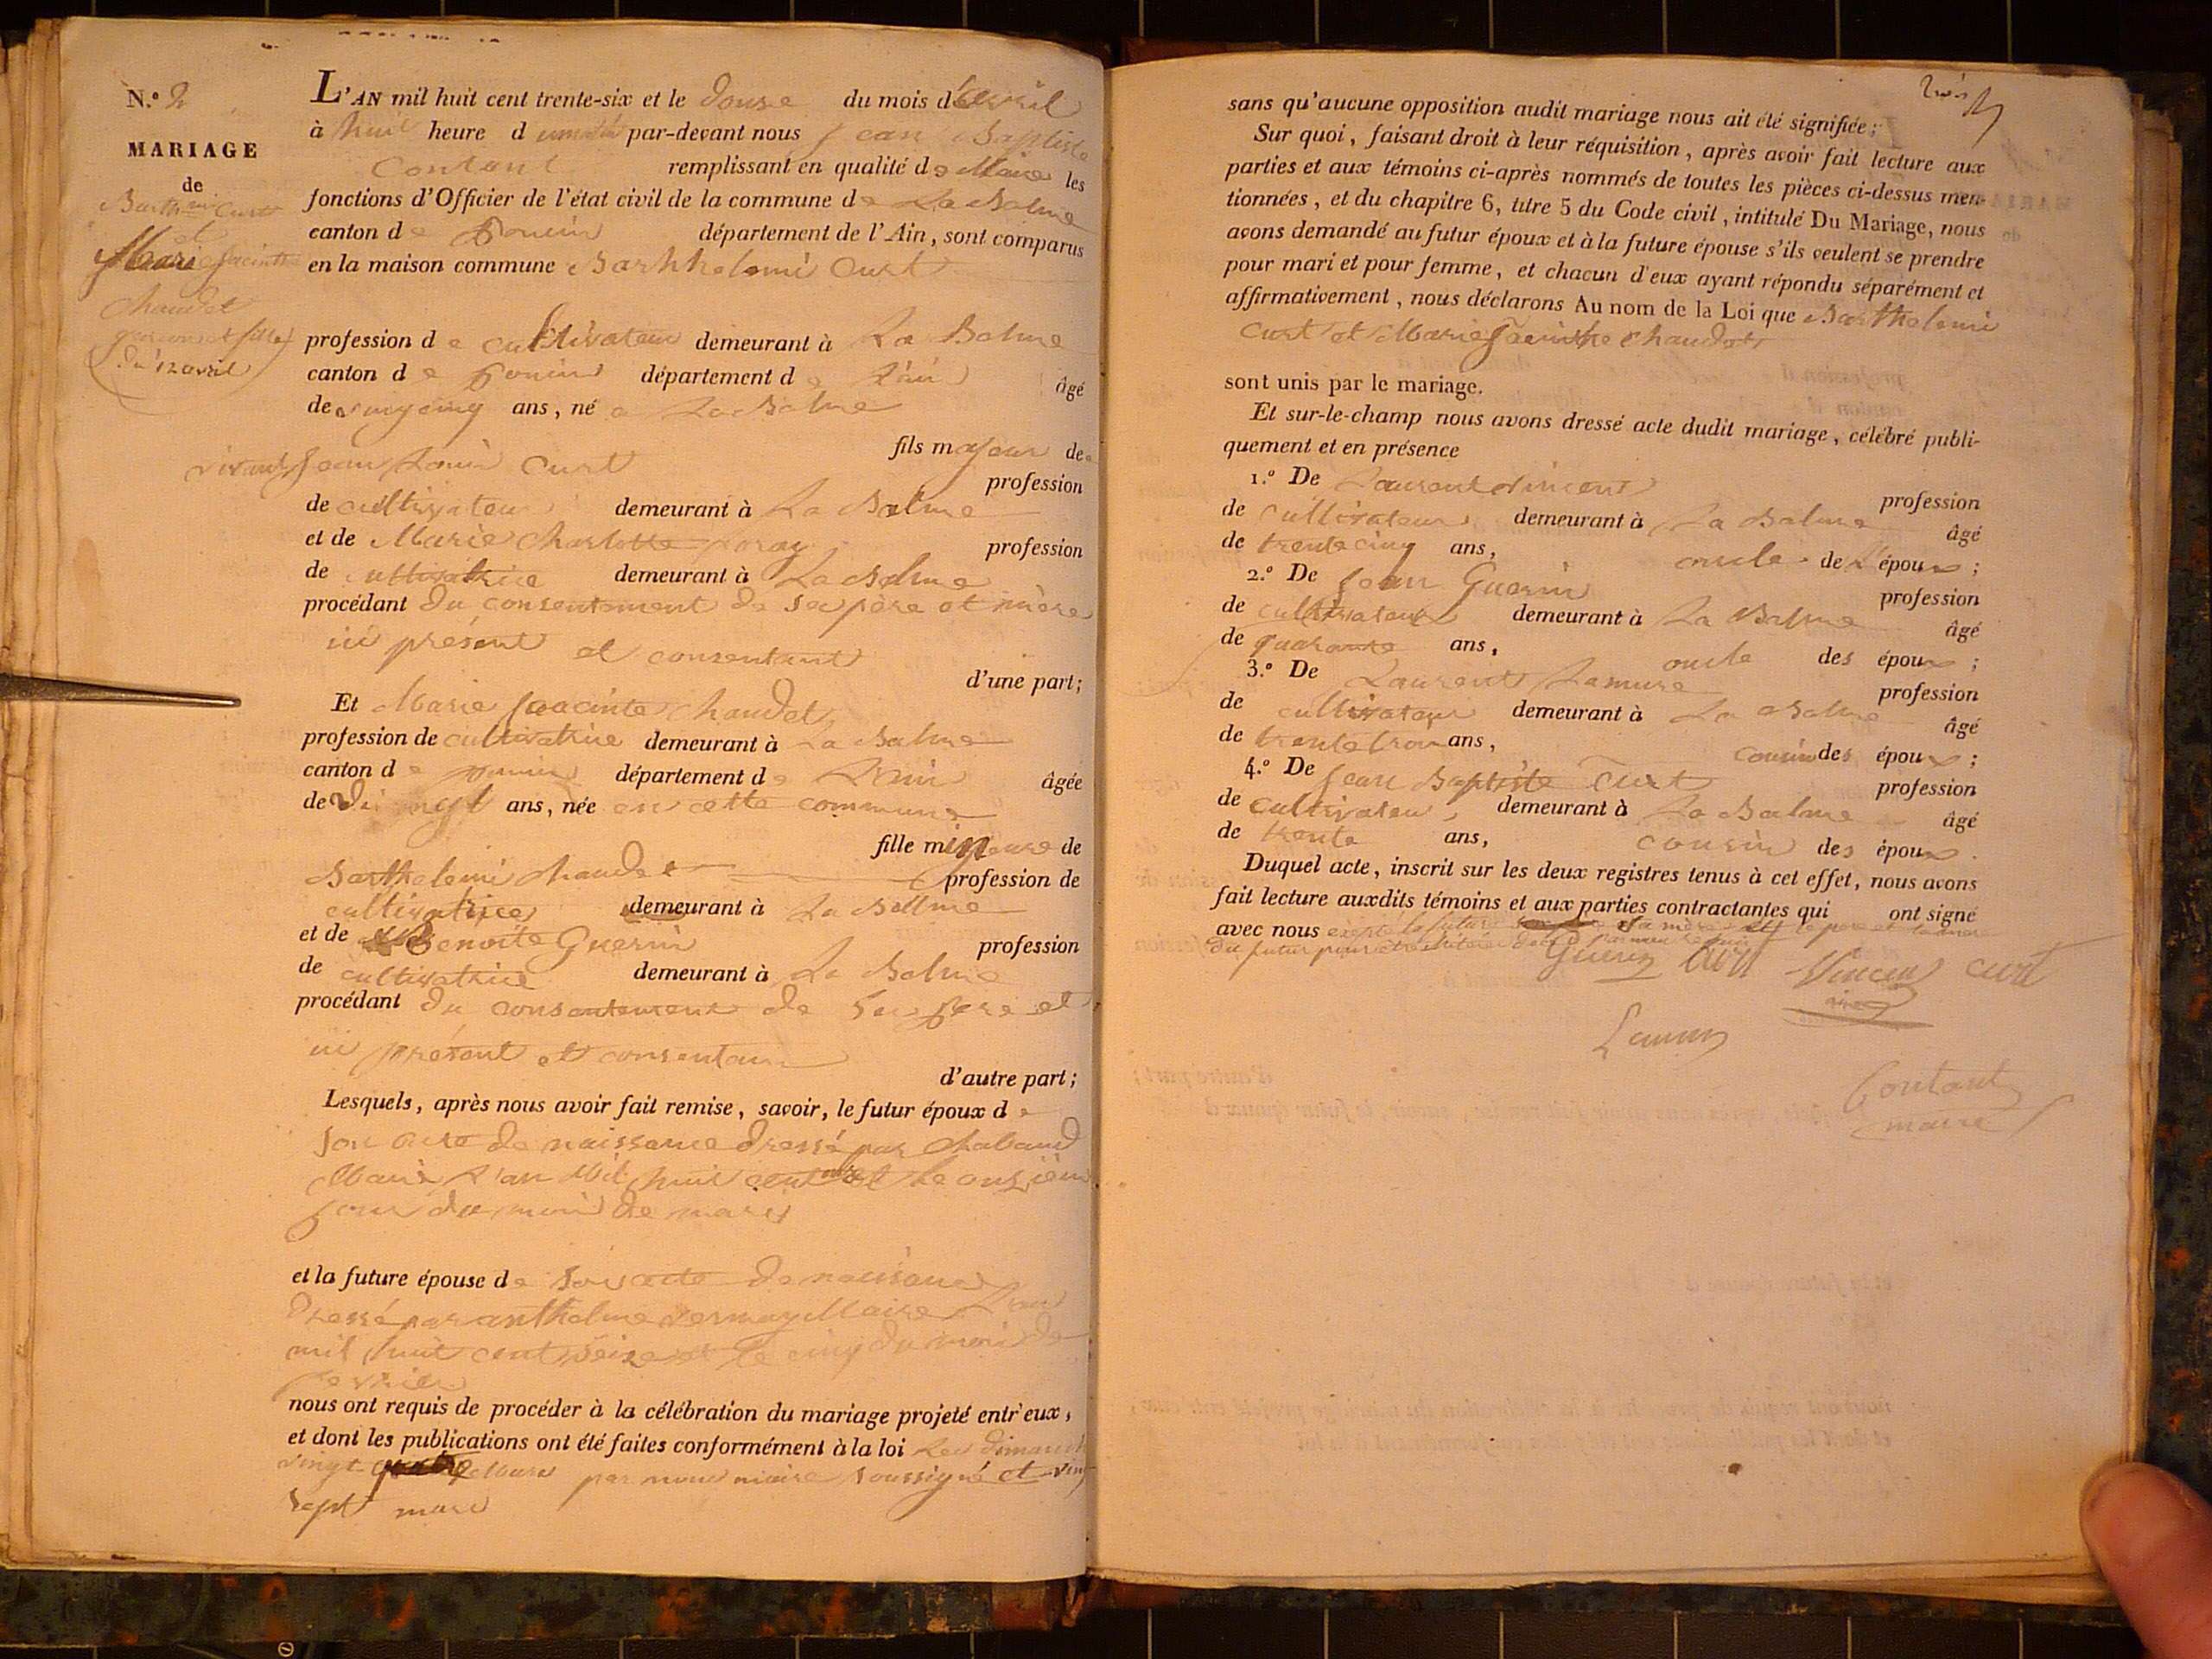 N.° 2
MARIAGE
de
Barth.mi Curt
et
Marie Jacinthe
Chaudet
garçon et fille
du 12 avril
L'AN mil huit cent trente-six et le douse du mois d'avril
à huit heure d par-devant nous Jean Baptiste
Contant remplissant en qualité de Maire les
fonctions d'Officier de l'état civil de la commune de La Balme
canton de département de l'Ain, sont comparus
en la maison commune Barthhelemi Curt
profession de cultivateur demeurant à La Balme
canton de département de l'ain âgé
de vingcinq ans, né a La Balme
fils majeur de
vivant Jean Louis Curt profession
de cultivateur demeurant à La Balme
et de Marie Charlotte profession
de cultivatrice demeurant à La Balme
procédant du consentement de ses père et mère
ici présent et consentant
d'une part;
Et Marie Jacinte Chaudet
profession de cultivatrice demeurant à La Balme
canton de département de l'ain âgée
de vingt ans, née en cette commune
fille mineure de
Barthelemi Chaudet profession de
cultivatrice demeurant à La Balme
et de Benoite Guerin profession
de cultivatrice demeurant à La Balme
procédant du consentement de ses père et
ici présent et consentant
d'autre part;
Lesquels, après nous avoir fait remise, savoir, le futur époux de
son acte de naissance dressé par Chaband
Maire L'an Mil huit cent onze et le onsième
jour du mois de mars
et la future épouse de son acte de naissance
dressé par anthelme vermay Maire L'an
mil huit cent seize et le cinq du mois de
fevrier
nous ont requis de procéder à la célébration du mariage projeté entr'eux,
et dont les publications ont été faites conformément à la loi Les dimanch
vingt mars par nous maire soussigné et vingt
sept mars
sans qu'aucune opposition audit mariage nous ait été signifiée;
Sur quoi, faisant droit à leur réquisition, après avoir fait lecture aux
parties et aux témoins ci-après nommés de toutes les pièces ci-dessus men-
tionnées, et du chapitre 6, titre 5 du Code civil, intitulé Du Mariage, nous
avons demandé au futur époux et à la future épouse s'ils veulent se prendre
pour mari et pour femme, et chacun d'eux ayant répondu séparément et
affirmativement, nous déclarons Au nom de la Loi que Barthelemi
Curt et Marie Jacinthe Chaudet
sont unis par le mariage.
Et sur-le-champ nous avons dressé acte dudit mariage, célébré publi-
quement et en présence
1.° De Laurent vincent profession
de cultivateur demeurant à La Balme âgé
de trente cinq ans, oncle de L'époux;
2.° De Jean Guerin profession
de cultivateur demeurant à La Balme âgé
de quarante ans, oncle des époux;
3.° De Laurent Lamure profession
de cultivateur demeurant à La Balme âgé
de trente trois ans, cousin des époux;
4.° De Jean Baptiste Curt profession
de cultivateur, demeurant à La Balme âgé
de trente ans, cousin des époux.
Duquel acte, inscrit sur les deux registres tenus à cet effet, nous avons
fait lecture auxdits témoins et aux parties contractantes qui ont signé
avec nous excepté la future sa mère et le père et la mère
du futur pour être
Guerin Curt Vincent Curt
Lamure
Contant
maire